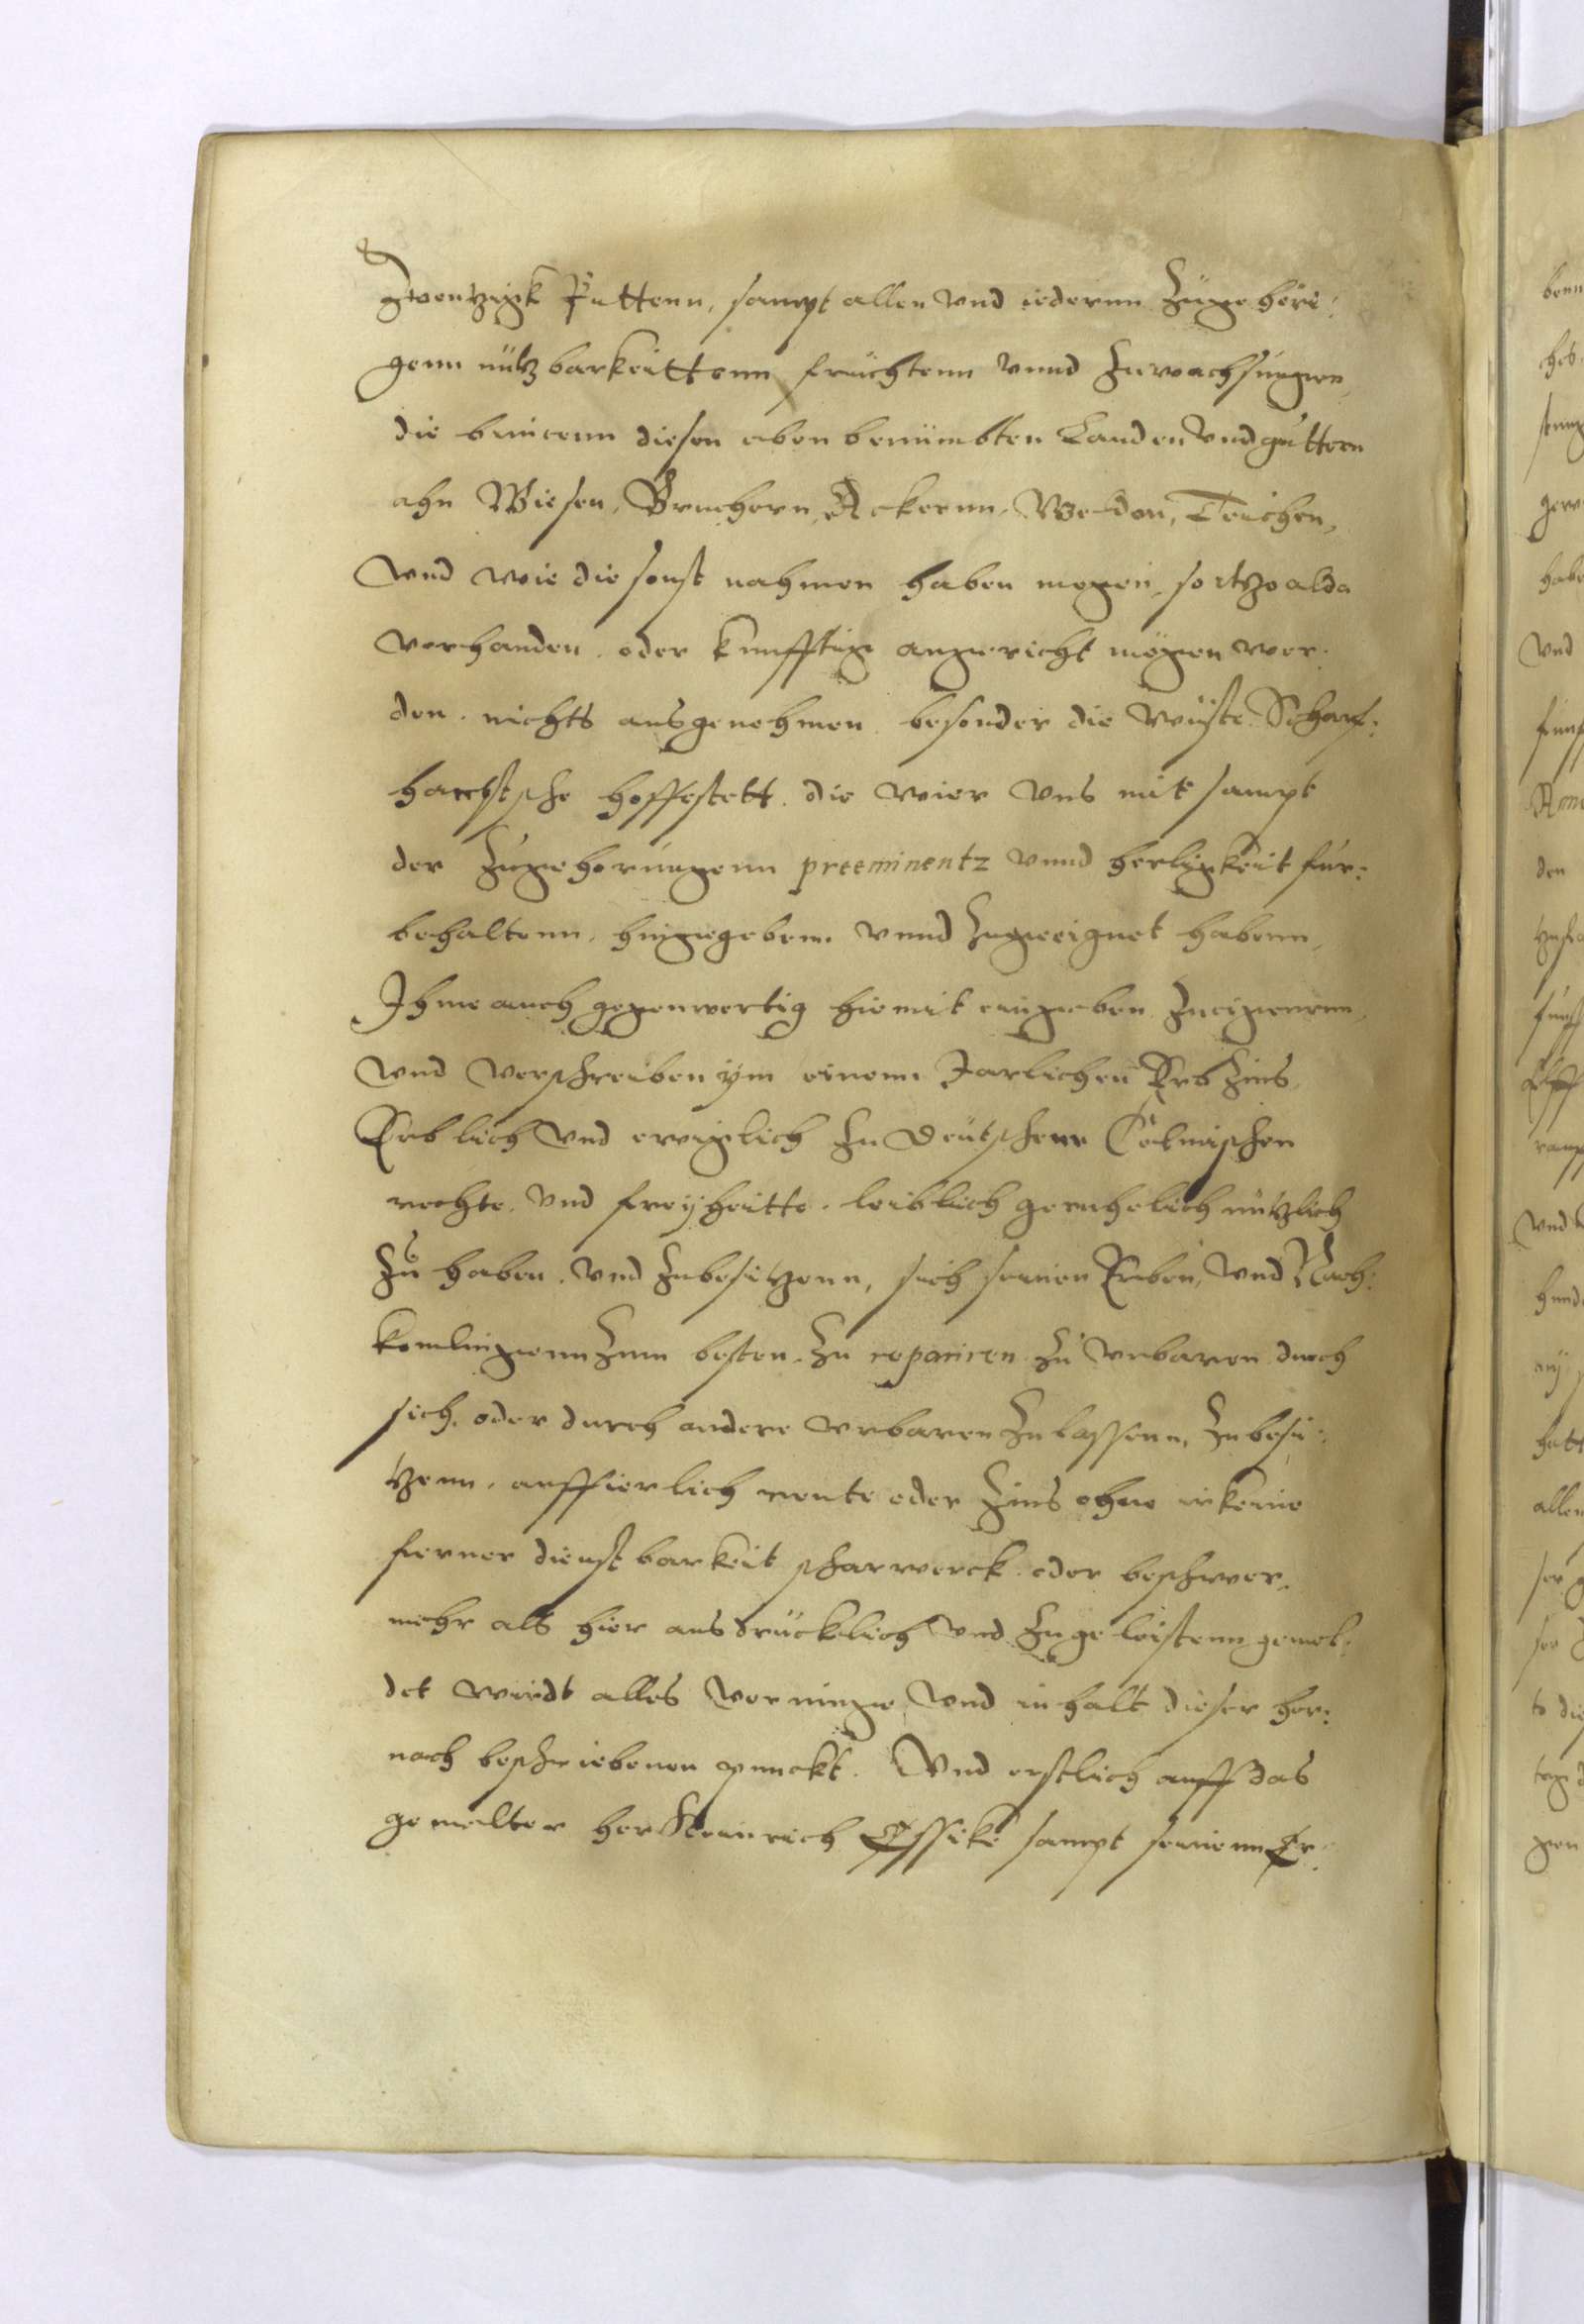 Zwentzigk Ruttenn, sampt allen vnd iedernn Zugehöri:
genn nützbarkeittenn früchtenn vnnd Zuwachsungen,
die binnenn diesen oben benümbten Landen vnd guttern
ahn Wiesen, Bruchern, Ackernn, Welden, Teichen,
vnd wie die sonst nahmen haben mogen, so itzo alda
vorhanden oder kunfftig angericht mögen wer:
den. nichts ausgenohmen besonder die wüste Scharf:
hoffestett. die wier vns mit sampt
der Zugehorungenn preeminentz vnnd herligkeit fur:
behaltenn, hingegebenn vnnd Zugeeignet habenn,
Ihme auch gegenwertig hiemit eingeben Zueigenenn,
vnd verschreiben vm einenn Jarlichen Erbzins,
Erblich vnd ewiglich zu deutschenn Cölmischen
rechte vnd freyheitte. leiblich geruhelich nützlich
Zu haben. vnd Zubesitzenn, sich seinen Erben, vnd Nach:
komlingenn Zum besten. Zu repariren Zu vrbaren durch
sich, oder durch andere vrbaren Zulassenn, Zubesi:
tzenn. auff ierlich rente oder Zins ohne irkeine
ferner dienstbarkeit scharwerck oder beschwer,
mehr als hier ausdrücklich vnd Zugeleistenn gemel:
det wirdt alles vermuge vnd inhalt dieser her:
nach beschriebenen punckt. Vnd erstlich auff das
gemelter her Heinrich sampt seinenn Er: